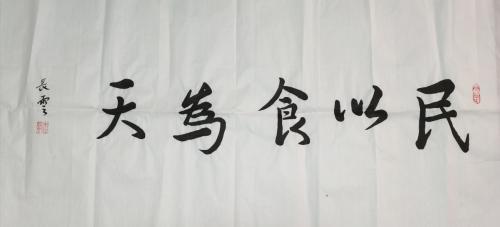 民以食為天
長雲